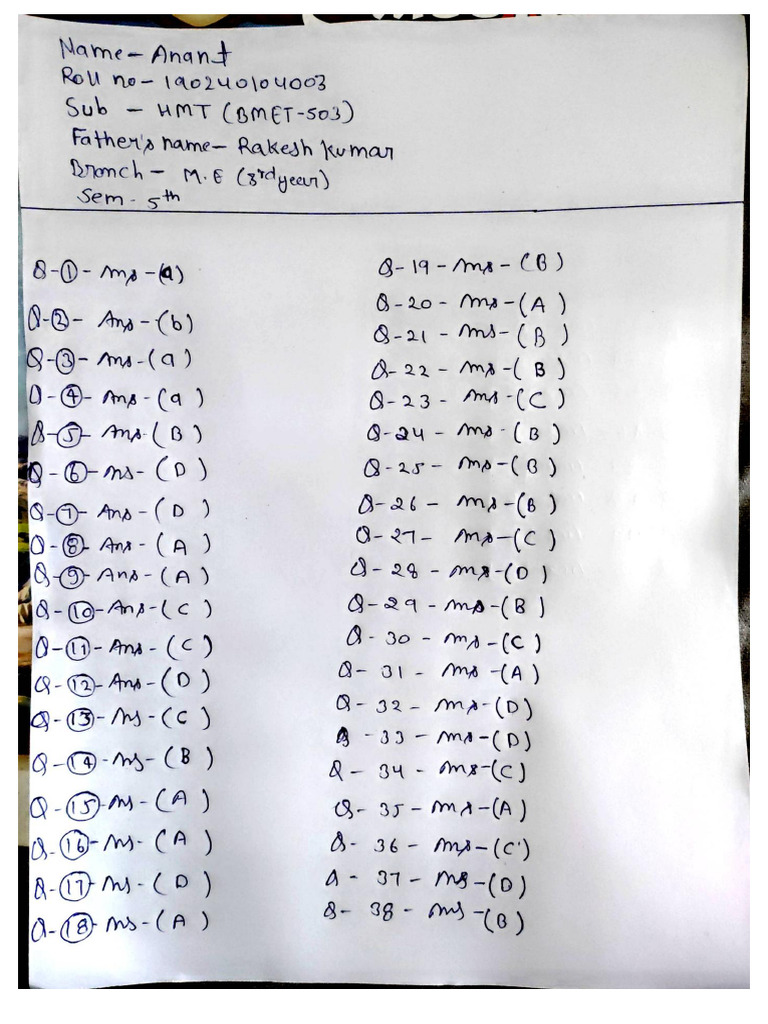 Name - Anant
Roll no - 190240104003
Sub - HMT (BMET-503)
Father's name - Rakesh Kumar
Branch - M.E (3rd year)
Sem - 5th
Q-1 - Ans - (a)
Q-2 - Ans - (b)
Q-3 - Ans - (a)
Q-4 - Ans - (a)
Q-5 - Ans - (B)
Q-6 - Ans - (D)
Q-7 - Ans - (D)
Q-8 - Ans - (A)
Q-9 - Ans - (A)
Q-10 - Ans - (C)
Q-11 - Ans - (C)
Q-12 - Ans - (D)
Q-13 - Ans - (C)
Q-14 - Ans - (B)
Q-15 - Ans - (A)
Q-16 - Ans - (A)
Q-17 - Ans - (D)
Q-18 - Ans - (A)
Q-19 - Ans - (B)
Q-20 - Ans - (A)
Q-21 - Ans - (B)
Q-22 - Ans - (B)
Q-23 - Ans - (C)
Q-24 - Ans - (B)
Q-25 - Ans - (B)
Q-26 - Ans - (B)
Q-27 - Ans - (C)
Q-28 - Ans - (D)
Q-29 - Ans - (B)
Q-30 - Ans - (C)
Q-31 - Ans - (A)
Q-32 - Ans - (D)
Q-33 - Ans - (D)
Q-34 - Ans - (C)
Q-35 - Ans - (A)
Q-36 - Ans - (C)
Q-37 - Ans - (D)
Q-38 - Ans - (B)